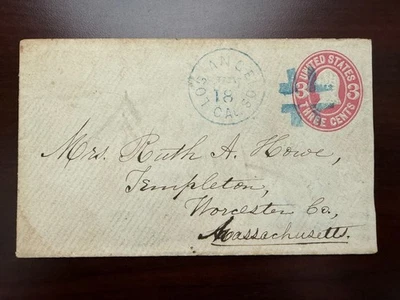 LOS ANGELOS
18
CAL.
UNITED STATES
3 3
THREE CENTS
Mrs. Ruth A. Howe,
Templeton,
Worcester Co.,
Massachusetts.